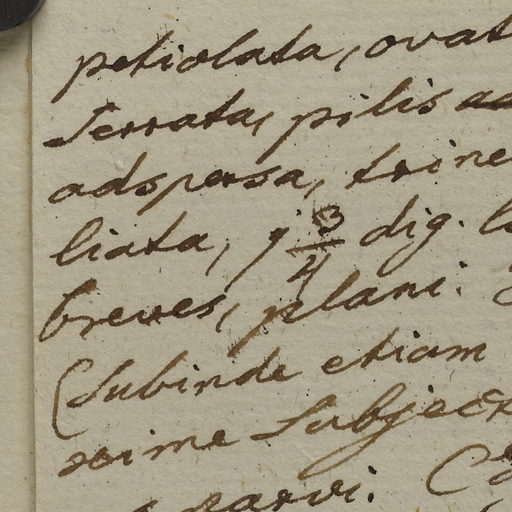 petiolata, ovat
Serrata, pilis
adspersa, trine
liata, j 3/4 dig. l
breves, plani.
(Subinde etiam
xime Subject
parvi.